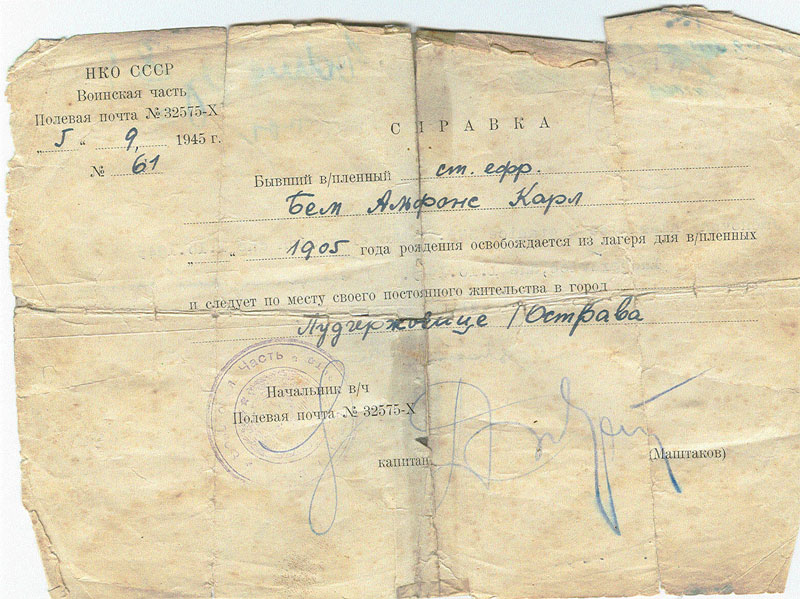 НКО СССР
Воинская часть
Полевая почта № 32575-X
„ 5 “ 9, 1945 г.
№ 61
СПРАВКА
Бывший в/пленный ст. ефр.
Бем Альфонс Карл
„ “ 1905 года рождения освобождается из лагеря для в/пленных
и следует по месту своего постоянного жительства в город
Лудгержовице / Острава
Часть
Начальник в/ч
Полевая почта № 32575-X
капитан
(Маштаков)